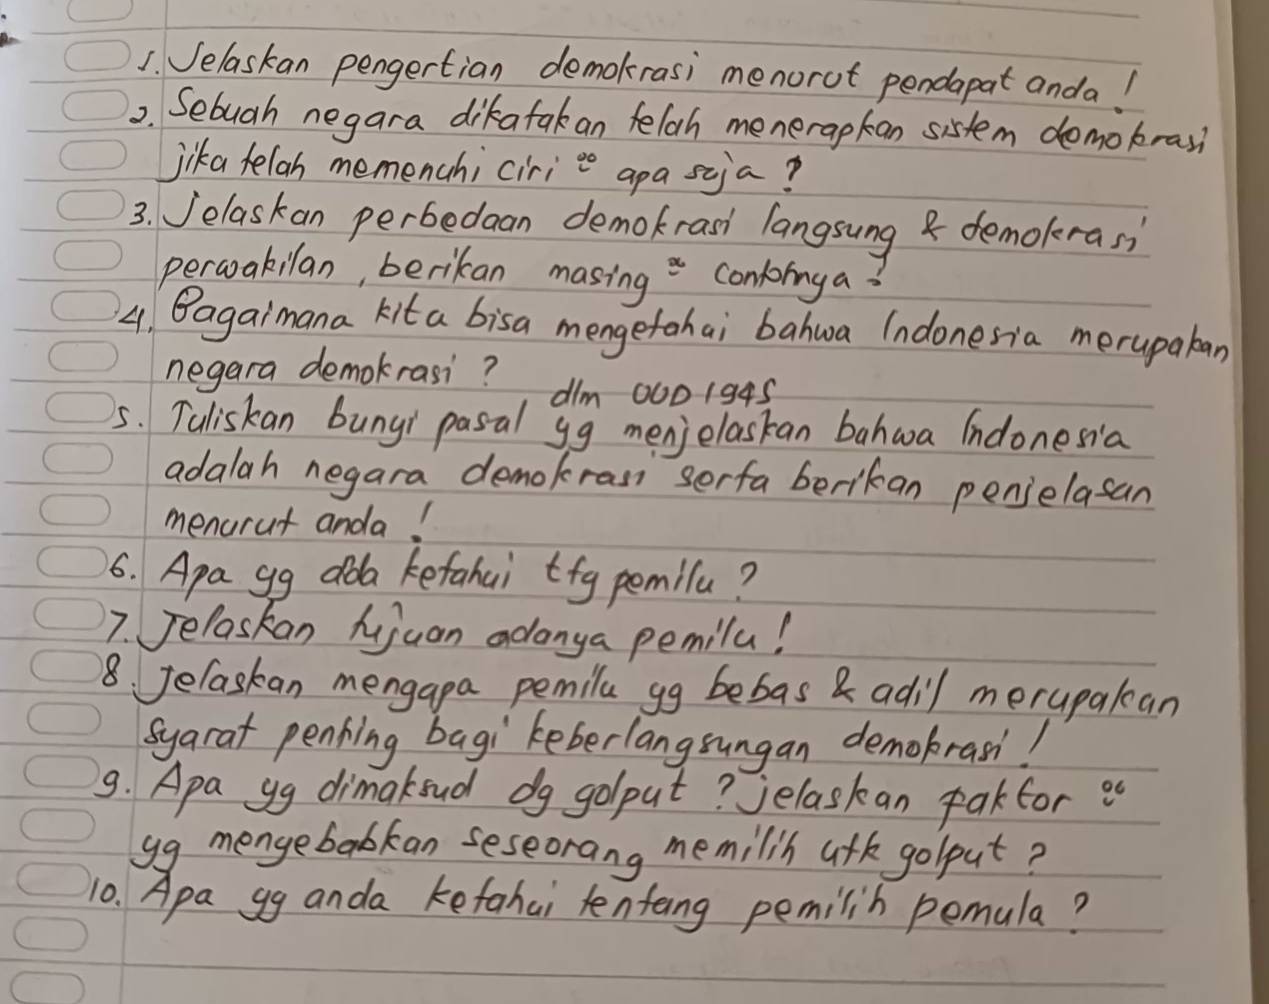 1. Jelaskan pengertian demokrasi menurut pendapat anda!
2. Sebuah negara dikatakan telah menerapkan sistem demokrasi
jika telah memenuhi ciri² apa saja?
3. Jelaskan perbedaan demokrasi langsung & demokrasi
perwakilan, berikan masing² contohnya?
4. Bagaimana kita bisa mengetahui bahwa Indonesia merupakan
negara demokrasi?
dlm UUD 1945
5. Tuliskan bunyi pasal yg menjelaskan bahwa Indonesia
adalah negara demokrasi serta berikan penjelasan
menurut anda!
6. Apa yg ketahui ttg pemilu?
7. Jelaskan tujuan adanya pemilu!
8. Jelaskan mengapa pemilu yg bebas & adil merupakan
syarat penting bagi keberlangsungan demokrasi!
9. Apa yg dimaksud dg golput? jelaskan faktor²
yg mengebabkan seseorang memilih utk golput?
10. Apa yg anda ketahui tentang pemilih pemula?